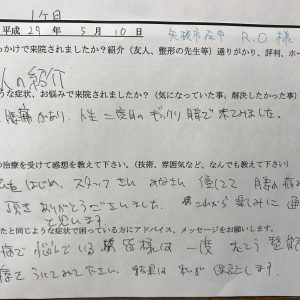 1ケ月
平成 29年 5月10日 矢板市在中 R.O様
っかけで来院されましたか？紹介（友人、整形の先生等）通りがかり、評判、ホー
人の紹介
うな症状、お悩みで来院されましたか？（気になっていた事、解決したかった事）
腰痛があり、人生二度目のギックリ腰で来てみました。
の治療を受けて感想を教えて下さい。（技術、雰囲気など、なんでも教えて下さい）
はじめ、スタッフさん みなさん 優しくて 腰の痛み
頂きありがとうございました。 これから楽しみに通
と思います。
たと同じような症状で困っている方にアドバイス、メッセージをお願いします。
痛で悩んでいる 皆様は 一度 むとう整骨
療をうけてみて下さい。結果は私が保証します。